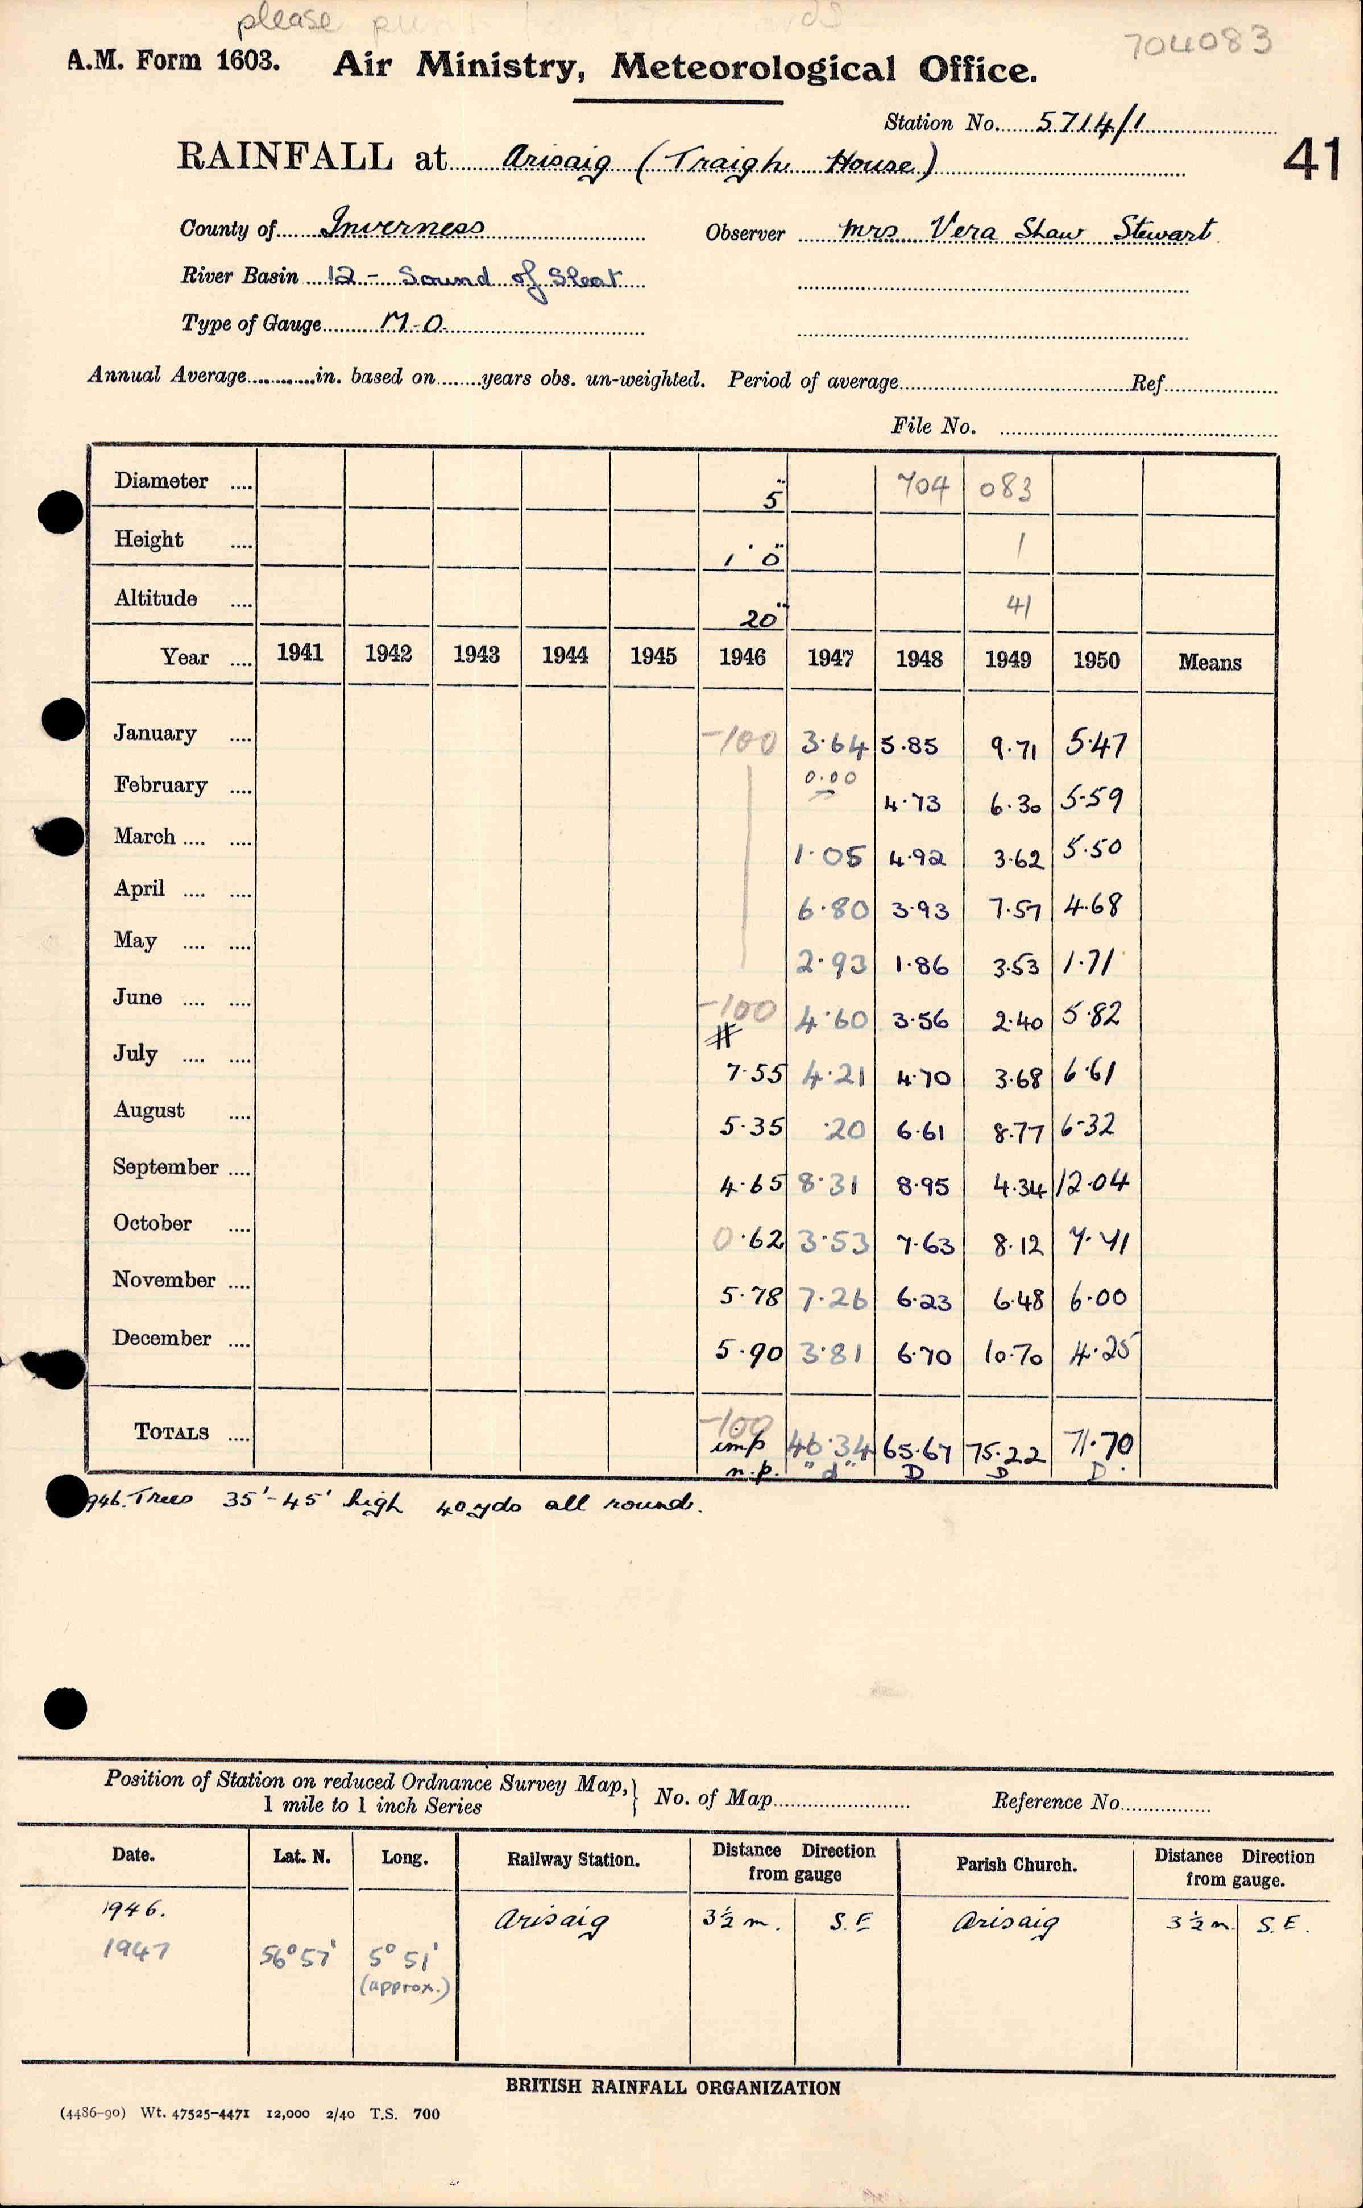 please
704083
A.M. Form 1603. Air Ministry, Meteorological Office.
Station No. 5714/1
41
RAINFALL at Arisaig (Traigh House)
County of Inverness Observer Mrs Vera Shaw Stewart
River Basin 12 - Sound of Sleat
Type of Gauge M.O.
Annual Average............in. based on........years obs. un-weighted. Period of average Ref
File No.
Diameter 5" 704 083
Height 1' 0" 1
Altitude 20" 41
Year 1941 1942 1943 1944 1945 1946 1947 1948 1949 1950 Means
January -100 3.64 5.85 9.71 5.47
February 0.00 4.73 6.30 5.59
March 1.05 4.92 3.62 5.50
April 6.80 3.93 7.57 4.68
May 2.93 1.86 3.53 1.71
June -100 4.60 3.56 2.40 5.82
#
July 7.55 4.21 4.70 3.68 6.61
August 5.35 .20 6.61 8.77 6.32
September 4.65 8.31 8.95 4.34 12.04
October 0.62 3.53 7.63 8.12 7.41
November 5.78 7.26 6.23 6.48 6.00
December 5.90 3.81 6.70 10.70 4.25
-100
TOTALS imp 46.34 65.67 75.22 71.70
n.p. "d" D D D.
946. Trees 35'-45' high 40 yds all round.
Position of Station on reduced Ordnance Survey Map, 1 mile to 1 inch Series No. of Map Reference No.
Date. Lat. N. Long. Railway Station. Distance Direction from gauge Parish Church. Distance Direction from gauge.
1946. Arisaig 3½ m. S.E Arisaig 3½ m. S.E.
1947 56°57' 5°51'
(approx.)
BRITISH RAINFALL ORGANIZATION
(4486-90) Wt. 47525-4471 12,000 2/40 T.S. 700